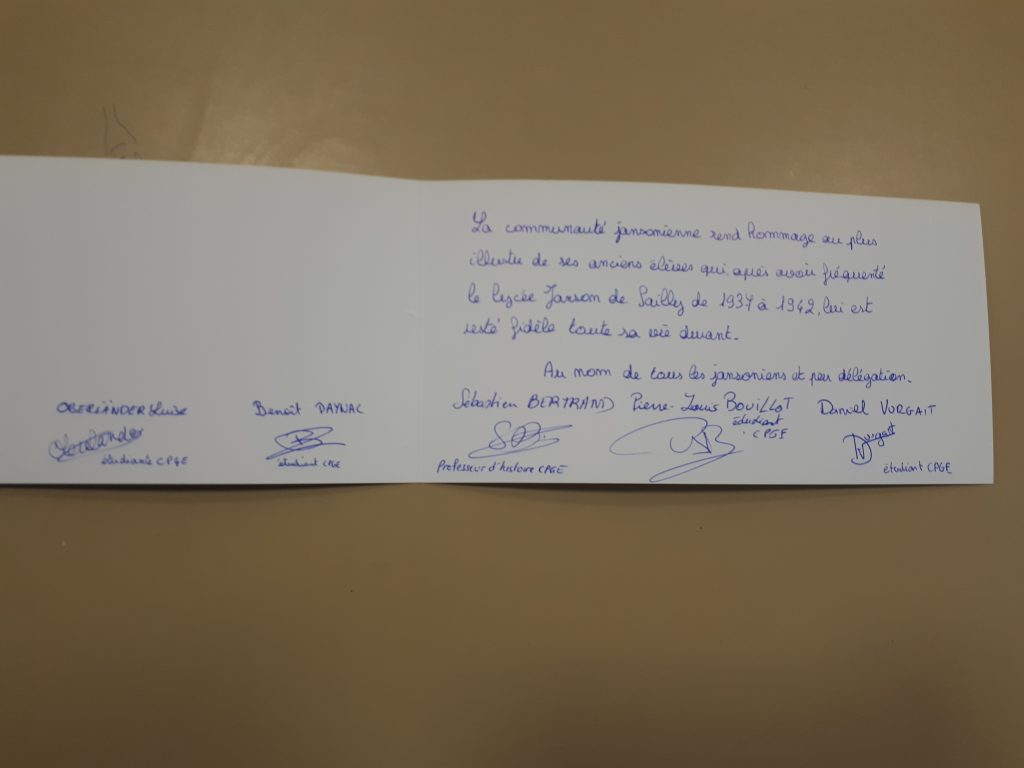 La communauté jansonienne rend hommage au plus
illustre de ses anciens élèves qui, après avoir fréquenté
le lycée Janson de Sailly de 1937 à 1942, lui est
resté fidèle toute sa vie durant.
Au nom de tous les jansoniens et par délégation.
OBERLÄNDER Luise
étudiante CPGE
Benoît DAYNAC
étudiant CPGE
Sébastien BERTRAND
Professeur d'histoire CPGE
Pierre-Louis BOUILLOT
étudiant
CPGE
Daniel VURGAIT
étudiant CPGE